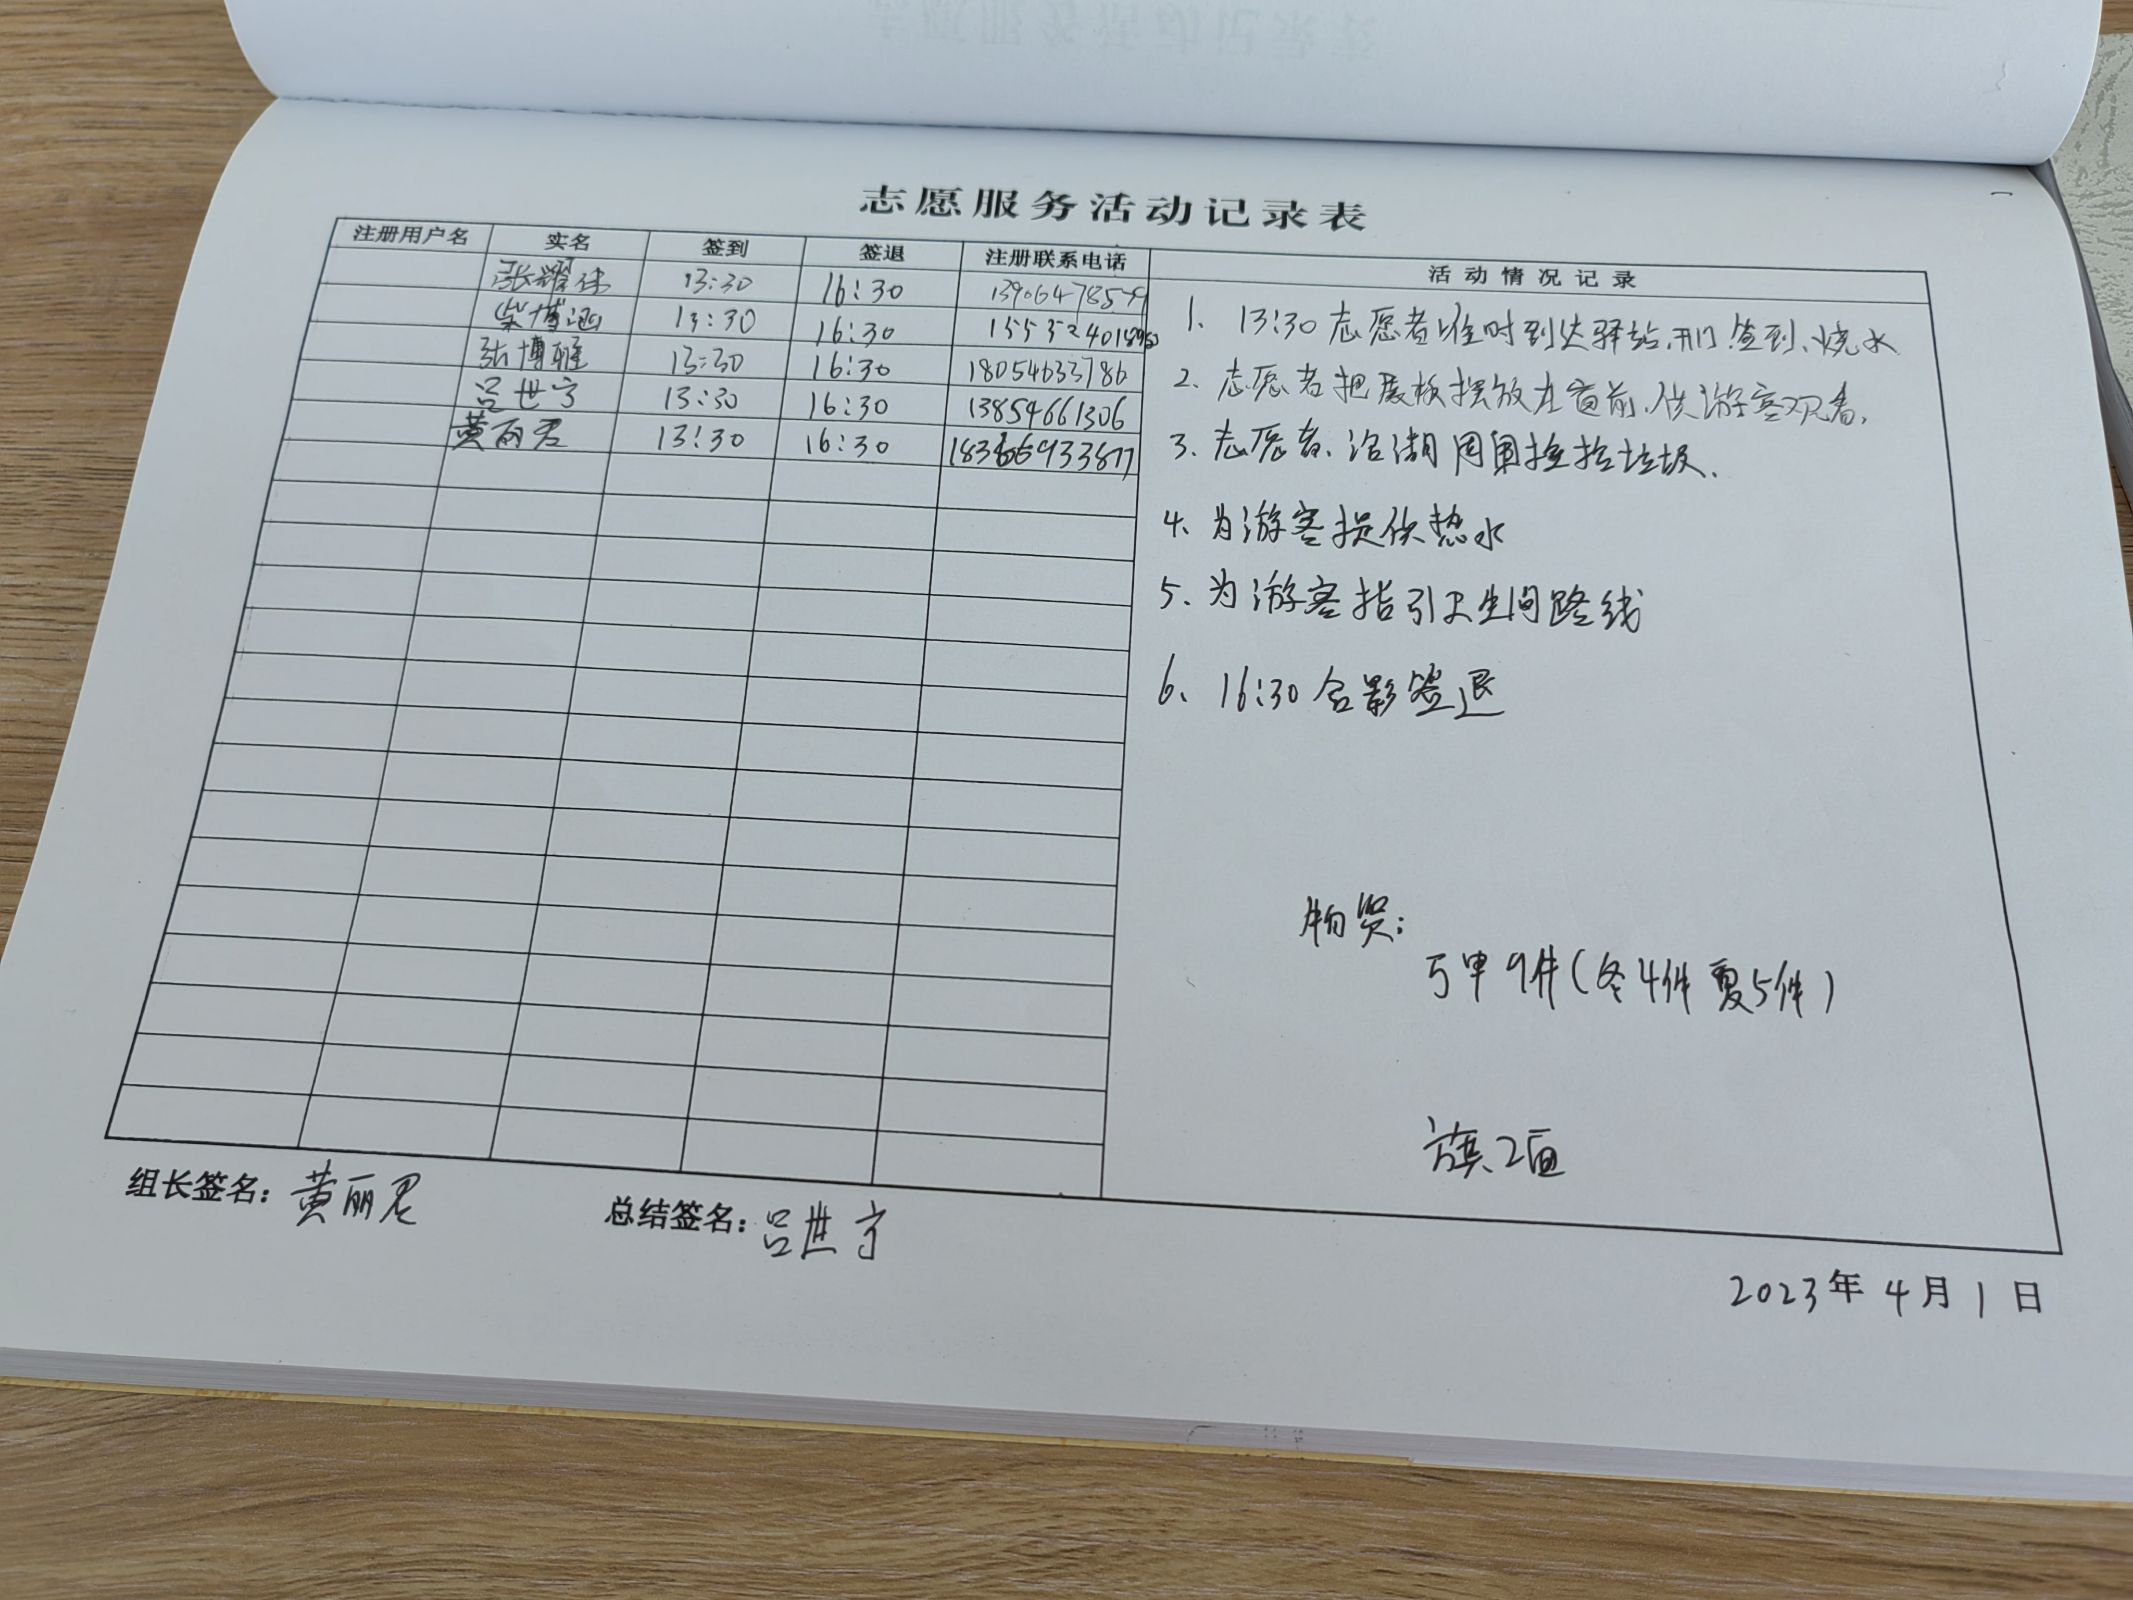 志愿服务活动记录表
注册用户名 实名 签到 签退 注册联系电话 活动情况记录
张耀 13:30 16:30
柴博 13:30 16:30
张博雅 13:30 16:30 18054633786
吕世宁 13:30 16:30 13854661306
黄丽君 13:30 16:30
1、13:30志愿者准时到达驿站、开门、签到、烧水
2、志愿者把展板摆放在窗前、供游客观看。
3、志愿者、沿湖周围捡拾垃圾、
4、为游客提供热水
5、为游客指引卫生间路线
6、16:30合影签退
物资:
马甲9件(冬4件 夏5件)
旗、2面
组长签名:黄丽君 总结签名:吕世宁
2023年4月1日